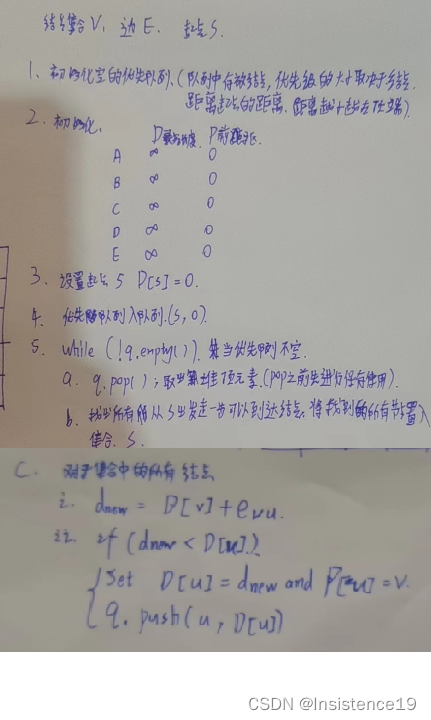 结点集合V, 边E. 起点S.
1、初始化空的优先队列.(队列中存放结点, 优先级的大小取决于结点
距离起点的距离. 距离越小越在顶端).
2、初始化.
D最短长度. P前驱
A ∞ 0
B ∞ 0
C ∞ 0
D ∞ 0
E ∞ 0
3. 设置起点 S D[S]=0.
4. 优先队列入队列.(S, 0).
5. while (!q.empty()). 当优先队列不空.
a. q.pop(); 取出顶元素.(pop之前先进行保存使用).
b. 找出所有从S出发走一步可以到达结点. 将找到的所有节点置入
集合. S.
C. 对于集合中的所有结点
i. dnew = D[v]+evu.
ii. if (dnew < D[u]).
set D[u]=dnew and P[u]=v.
q.push(u, D[u])
CSDN @Insistence19